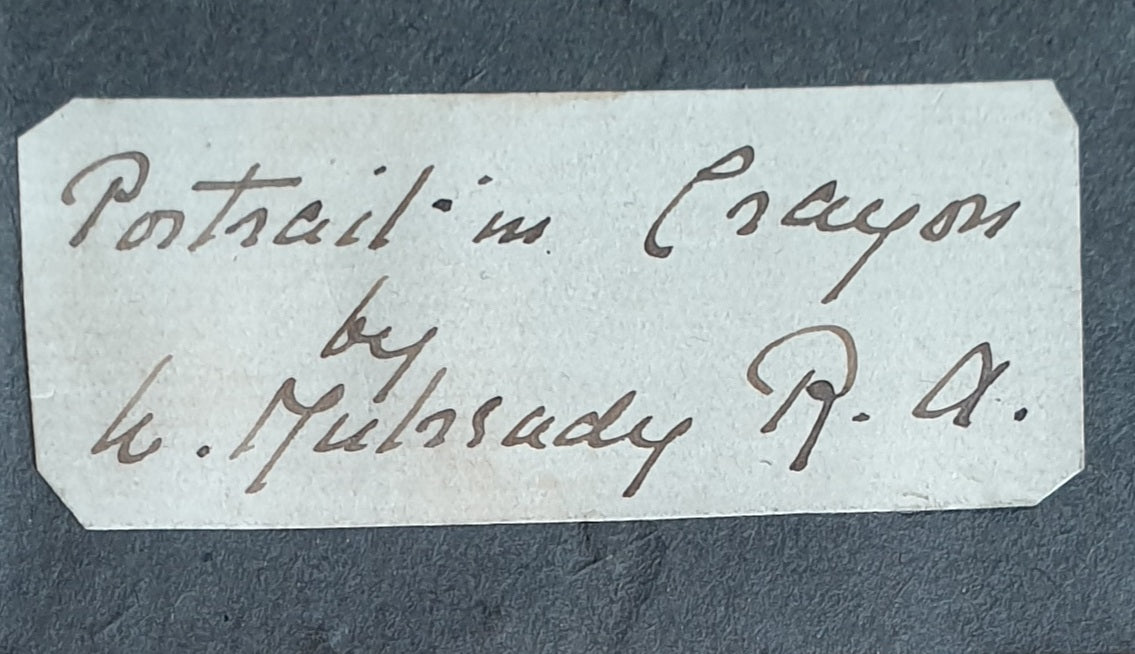 Portrait in Crayon
by
W. Mulready R. A.